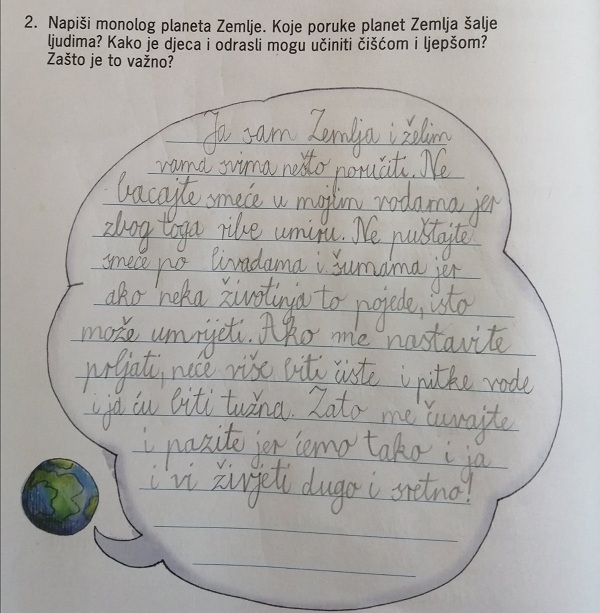 2. Napiši monolog planeta Zemlje. Koje poruke planet Zemlja šalje
ljudima? Kako je djeca i odrasli mogu učiniti čišćom i ljepšom?
Zašto je to važno?
Ja sam Zemlja i želim
vama svima nešto poručiti. Ne
bacajte smeće u mojim vodama jer
zbog toga ribe umiru. Ne puštajte
smeće po livadama i šumama jer
ako neka životinja to pojede, isto
može umrijeti. Ako me nastavite
prljati, neće više biti čiste i pitke vode
i ja ću biti tužna. Zato me čuvajte
i pazite jer ćemo tako i ja
i vi živjeti dugo i sretno!